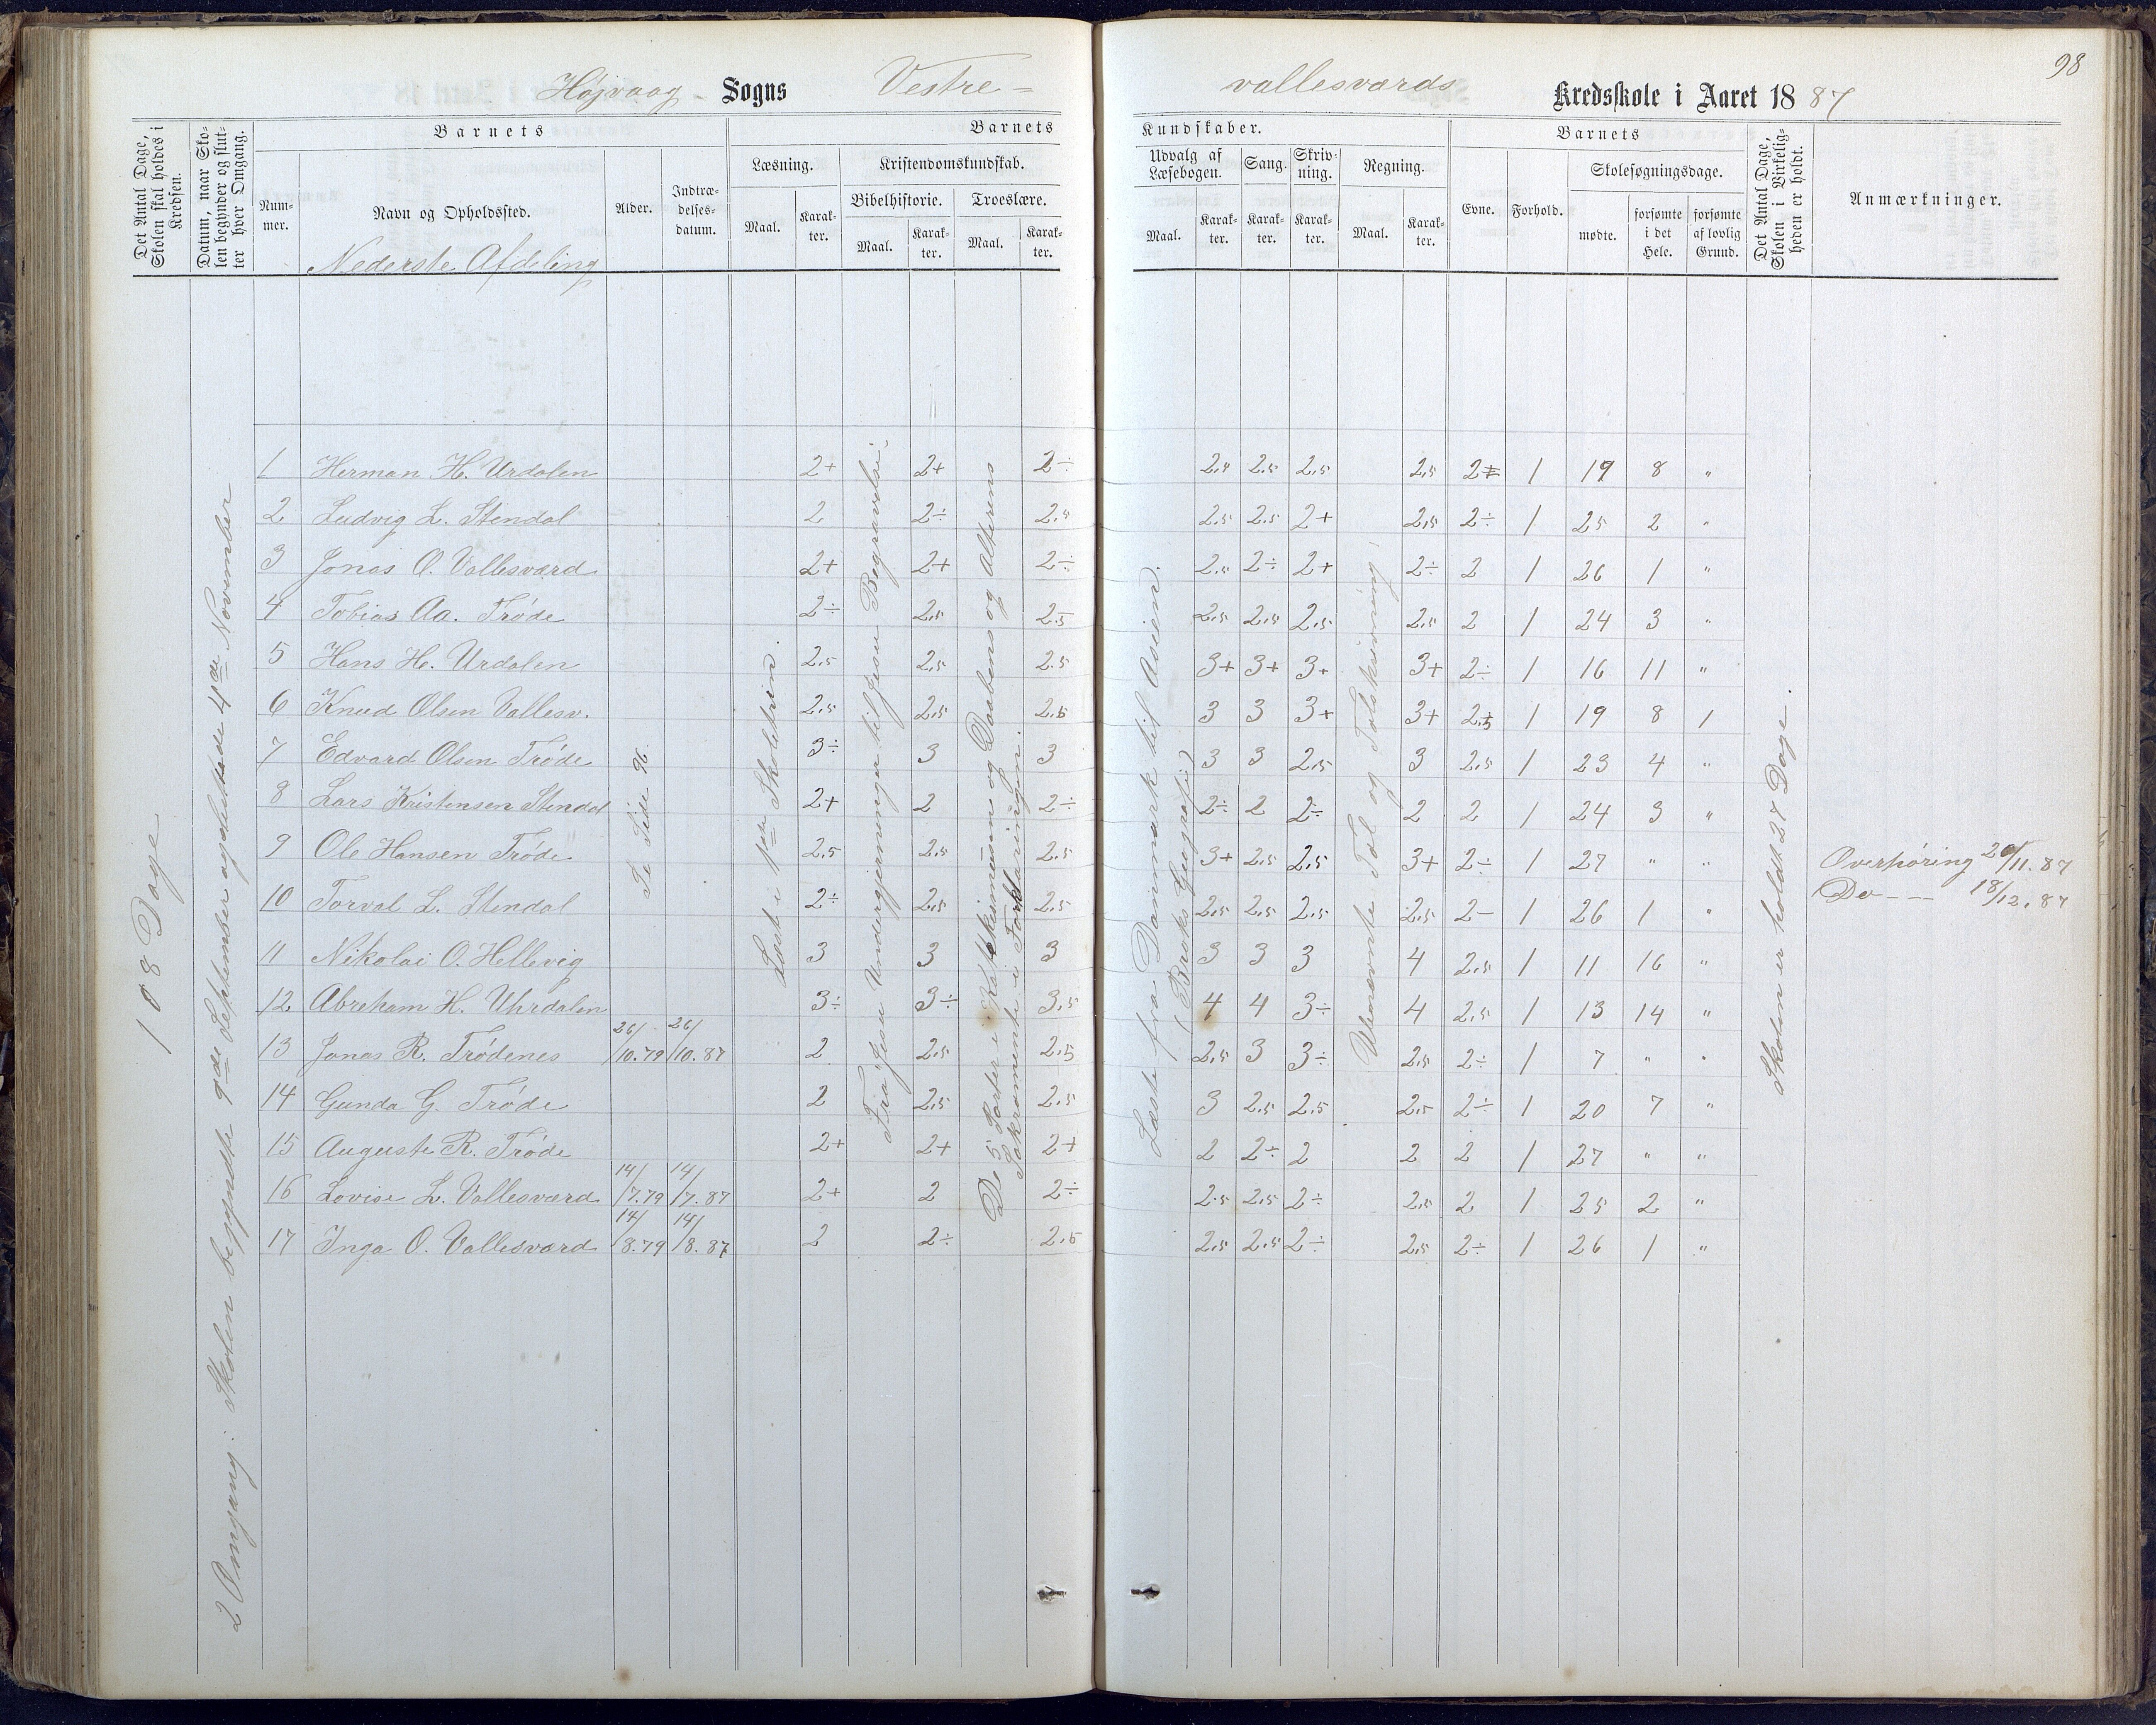 98
Højvaag - Sogns Vestre =
vallesværds Kredsskole i Aaret 1887
Det Antal Dage, Skolen skal holdes i Kredsen.
Datum, naar Skolen begynder og slutter hver Omgang.
Barnets
Nummer.
Navn og Opholdssted.
Nederste Afdeling
Alder.
Indtrædelsesdatum.
Barnets Kundskaber.
Læsning.
Maal. Karakter.
Kristendomskundskab.
Bibelhistorie. Troeslære.
Maal. Karakter. Maal. Karakter.
Udvalg af Læsebogen. Sang. Skrivning. Regning.
Maal. Karakter. Karakter. Karakter. Maal. Karakter.
Barnets
Evne. Forhold. Skolesøgningsdage.
mødte. forsømte i det Hele. forsømte af lovlig Grund.
Det Antal Dage, Skolen i Virkeligheden er holdt.
Anmærkninger.
108 Dage
2 Omgang: Skolen begyndte 9de September og sluttede 4de November
Se Side 96.
Læst i 1ste Skoletrin.
Fra Jesu Undergjerninger til Jesu Begravelse.
De 5 Parter i Katekismusen og Daabens og Alterens
Sakramente i Forklaringen.
Læste fra Danmark til Asien.
(Broks Geografi)
Ubenævnte Tal og Talskrivning
Skolen er holdt 27 Dage.
1 Herman H. Urdalen 2+ 2+ 2÷ 2.5 2.5 2.5 2.5 2± 1 19 8 "
2 Ludvig L. Stendal 2 2÷ 2.5 2.5 2.5 2+ 2.5 2÷ 1 25 2 "
3 Jonas O. Vallesværd 2+ 2+ 2÷ 2.5 2÷ 2+ 2÷ 2 1 26 1 "
4 Tobias Aa. Trøde 2÷ 2.5 2.5 2.5 2.5 2.5 2.5 2 1 24 3 "
5 Hans H. Urdalen 2.5 2.5 2.5 3+ 3+ 3+ 3+ 2÷ 1 16 11 "
6 Knud Olsen Vallesv. 2.5 2.5 2.5 3 3 3+ 3+ 2.5 1 19 8 1
7 Edvard Olsen Trøde 3÷ 3 3 3 3 2.5 3 2.5 1 23 4 "
8 Lars Kristensen Stendal 2+ 2 2÷ 2÷ 2 2÷ 2 2 1 24 3 "
9 Ole Hansen Trøde 2.5 2.5 2.5 3+ 2.5 2.5 3+ 2÷ 1 27 " " Overhøring 20/11.87
10 Torval L. Stendal 2÷ 2.5 2.5 2.5 2.5 2.5 2.5 2- 1 26 1 " Do - - - 18/12.87
11 Nikolai O. Hellevig 3 3 3 3 3 3 4 2.5 1 11 16 "
12 Abreham H. Uhrdalen 3÷ 3÷ 3.5 4 4 3÷ 4 2.5 1 13 14 "
13 Jonas R. Trødenes 26/10.79 26/10.87 2 2.5 2.5 2.5 3 3÷ 2.5 2÷ 1 7 " "
14 Gunda G. Trøde 2 2.5 2.5 3 2.5 2.5 2.5 2÷ 1 20 7 "
15 Auguste R. Trøde 2+ 2+ 2+ 2 2÷ 2 2 2 1 27 " "
16 Lovise L. Vallesværd 14/7.79 14/7.87 2+ 2 2÷ 2.5 2.5 2÷ 2.5 2 1 25 2 "
17 Inga O. Vallesværd 14/8.79 14/8.87 2 2÷ 2.5 2.5 2.5 2÷ 2.5 2÷ 1 26 1 "